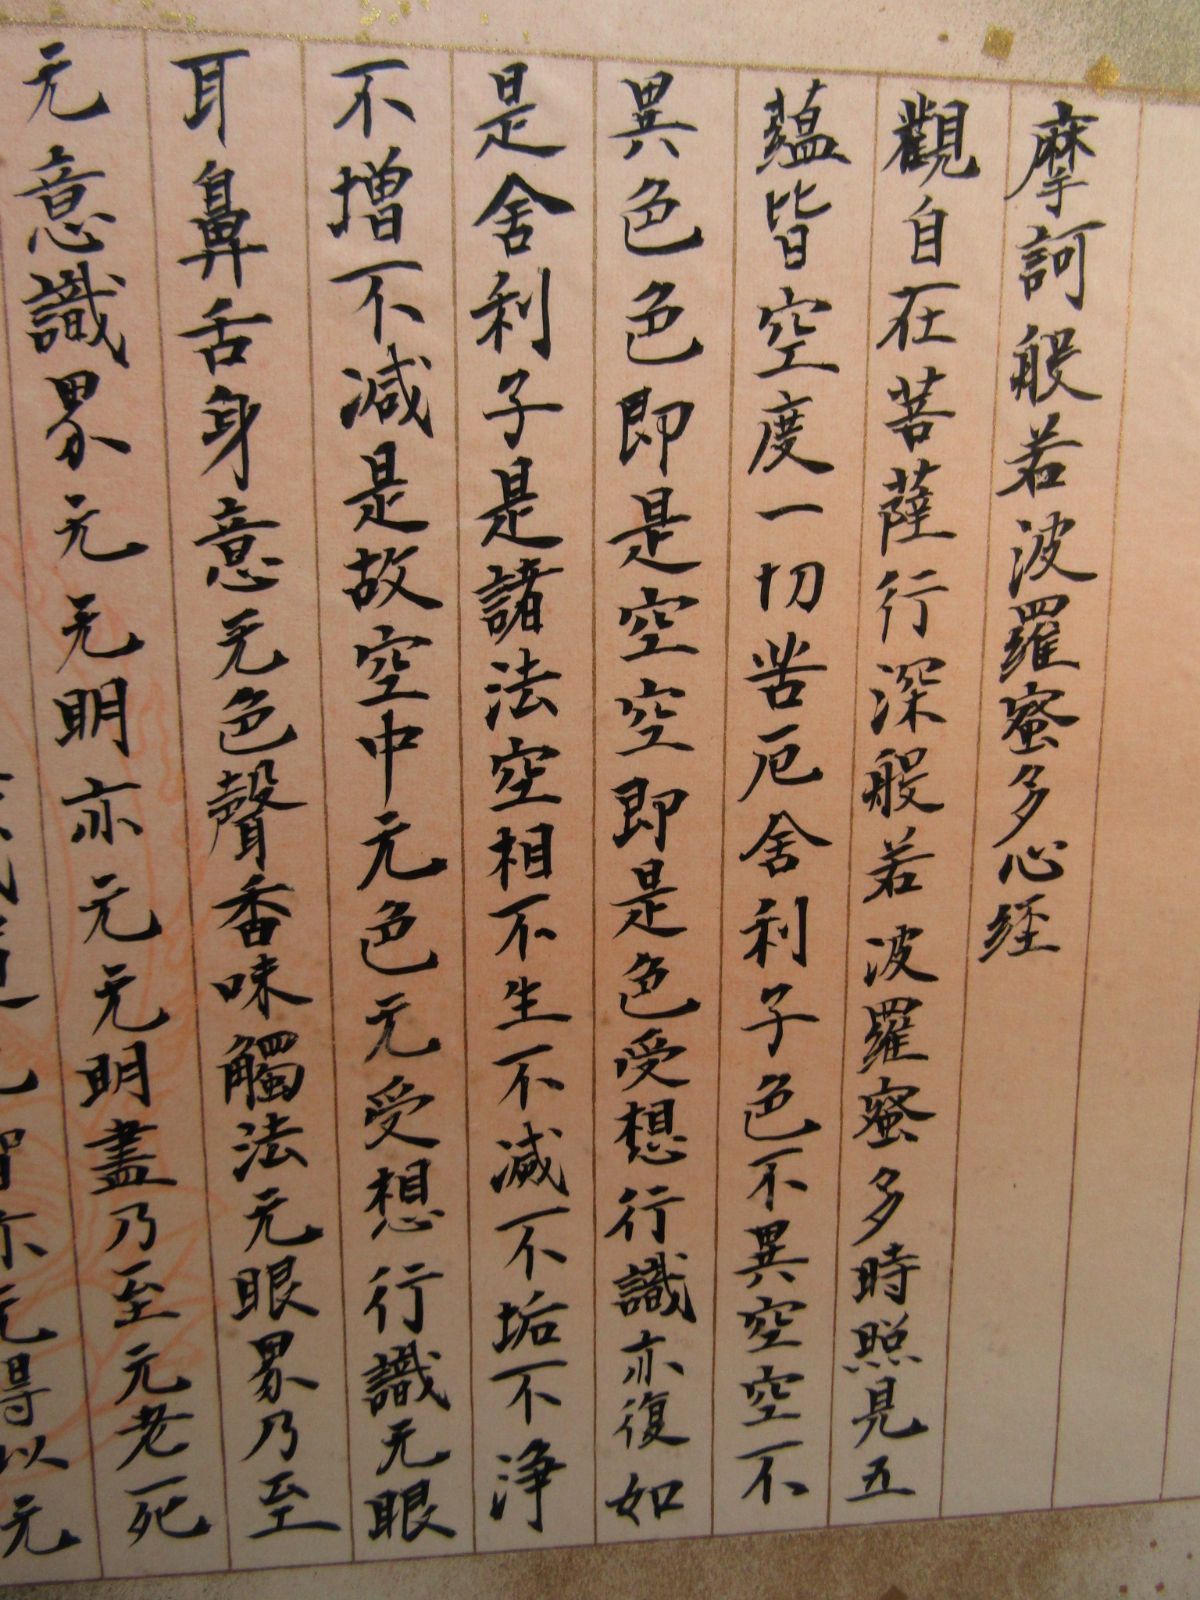 摩訶般若波羅蜜多心経
觀自在菩薩行深般若波羅蜜多時照見五
蘊皆空度一切苦厄舍利子色不異空空不
異色色即是空空即是色受想行識亦復如
是舍利子是諸法空相不生不滅不垢不浄
不増不減是故空中无色无受想行識无眼
耳鼻舌身意无色聲香味觸法无眼界乃至
无意識界无无明亦无无明盡乃至无老死
无智亦无得以无